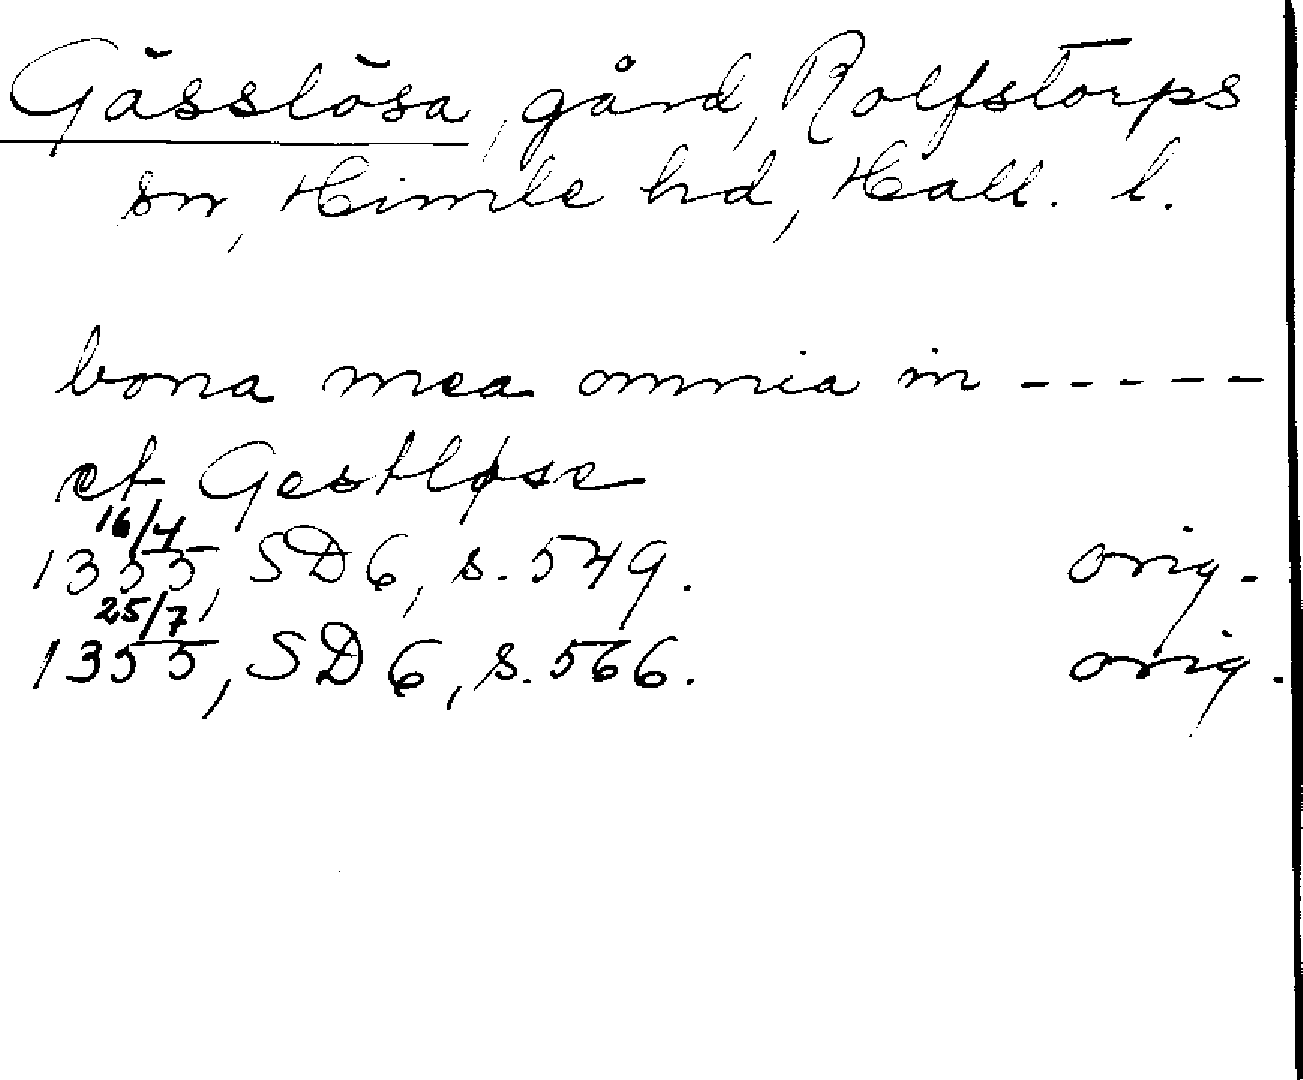 Gässlösa, gård, Rolfstorps
sn, Himle hd, Hall. l.
bona mea omnia in -----
et Gestløse
16/4
1355, SD 6, s. 549. orig.
25/7
1355, SD 6, s. 566. orig.